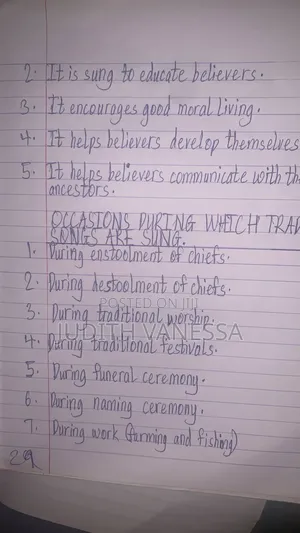 2. It is sung to educate believers.
3. It encourages good moral living.
4. It helps believers develop themselves
5. It helps believers communicate with th
ancestors.
OCCASIONS DURING WHICH TRAD
SONGS ARE SUNG.
1. During enstoolment of chiefs.
2. During destoolment of chiefs.
POSTED ON JIJI
3. During traditional worship.
JUDITH VANESSA
4. During traditional festivals.
5. During funeral ceremony.
6. During naming ceremony.
7. During work (farming and fishing)
29